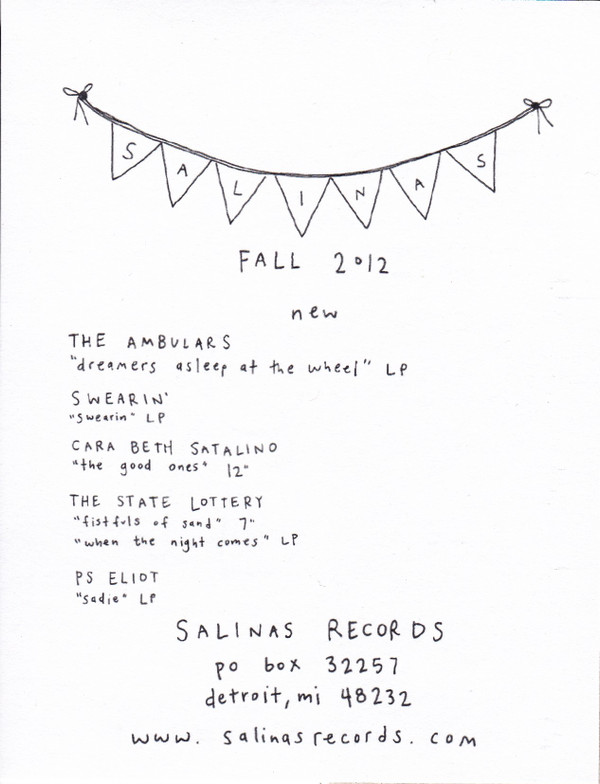 SALINAS
FALL 2012
new
THE AMBULARS
"dreamers asleep at the wheel" LP
SWEARIN'
"swearin" LP
CARA BETH SATALINO
"the good ones" 12"
THE STATE LOTTERY
"fistfuls of sand" 7"
"when the night comes" LP
PS ELIOT
"sadie" LP
SALINAS RECORDS
po box 32257
detroit, mi 48232
www. salinasrecords. com